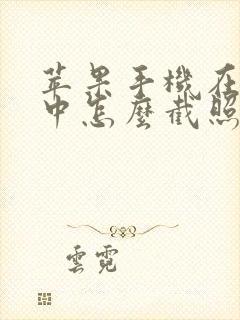 苹果手機在
中怎麼截照
雲霓